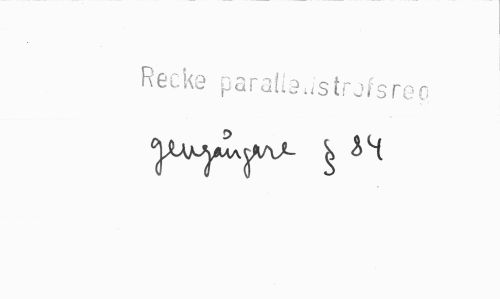 Recke parallellstrofsreg
gengångare § 84